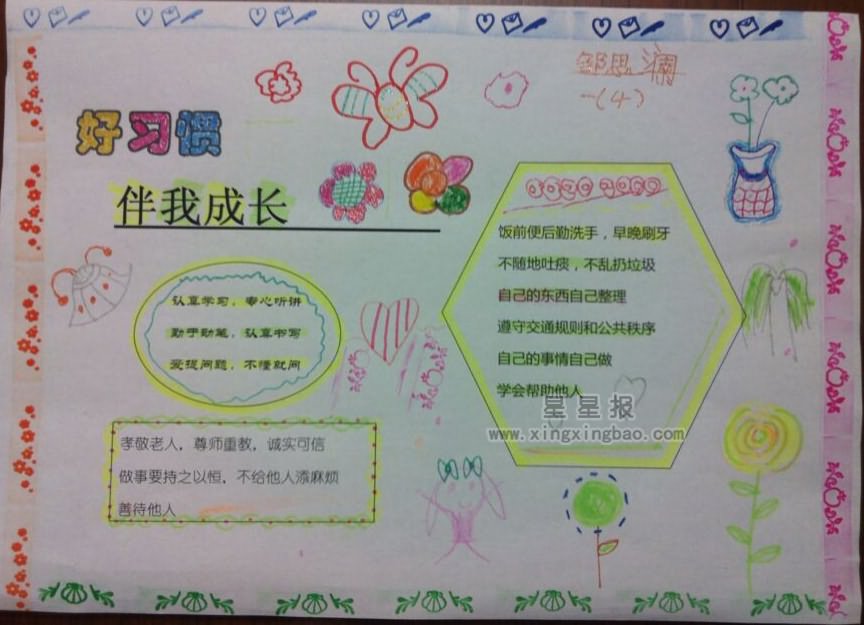 邹思澜
一(4)
好习惯
伴我成长
饭前便后勤洗手，早晚刷牙
不随地吐痰，不乱扔垃圾
自己的东西自己整理
遵守交通规则和公共秩序
自己的事情自己做
学会帮助他人
认真学习，专心听讲
勤于动笔，认真书写
爱提问题，不懂就问
孝敬老人，尊师重教，诚实可信
做事要持之以恒，不给他人添麻烦
善待他人
星星报
www.xingxingbao.com